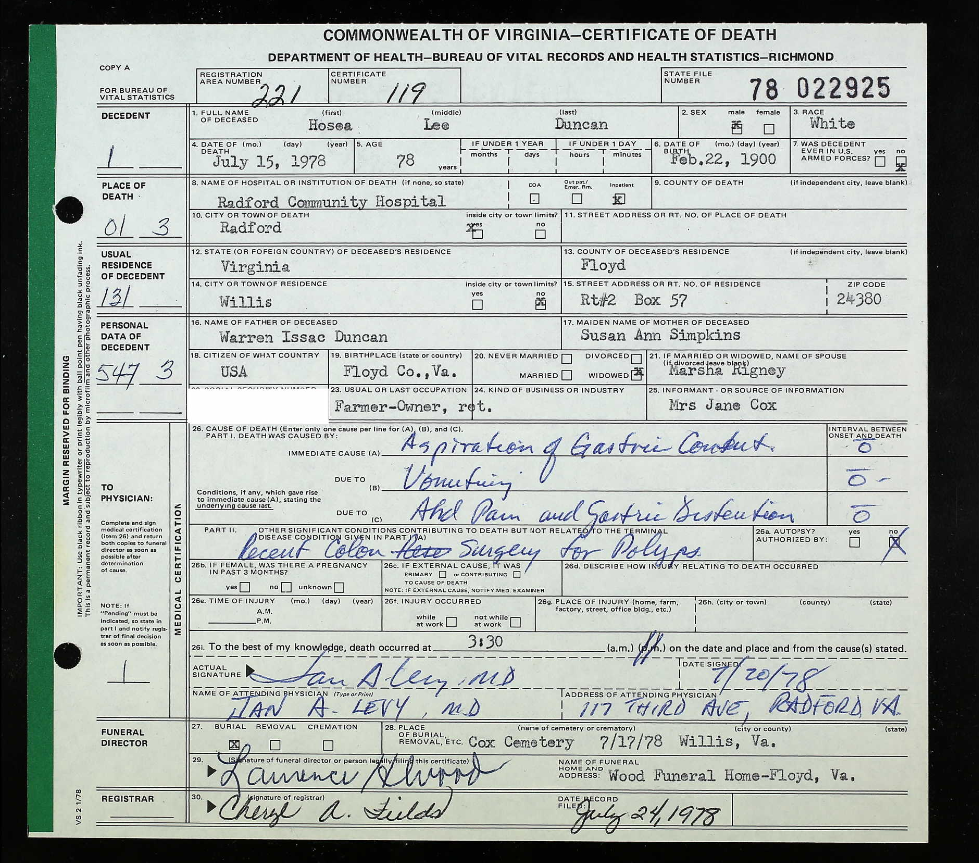 COMMONWEALTH OF VIRGINIA—CERTIFICATE OF DEATH
DEPARTMENT OF HEALTH—BUREAU OF VITAL RECORDS AND HEALTH STATISTICS—RICHMOND
COPY A
FOR BUREAU OF VITAL STATISTICS
REGISTRATION AREA NUMBER 221 CERTIFICATE NUMBER 119 STATE FILE NUMBER 78 022925
DECEDENT
1. FULL NAME OF DECEASED (first) (middle) (last) 2. SEX male female 3. RACE
Hosea Lee Duncan White
4. DATE OF DEATH (mo.) (day) (year) 5. AGE IF UNDER 1 YEAR IF UNDER 1 DAY 6. DATE OF BIRTH (mo.) (day) (year) 7. WAS DECEDENT EVER IN U.S. ARMED FORCES? yes no
months days hours minutes
1 July 15, 1978 78 years Feb.22, 1900
PLACE OF DEATH
8. NAME OF HOSPITAL OR INSTITUTION OF DEATH (if none, so state) DOA Out pat/ Emer. Rm. Inpatient 9. COUNTY OF DEATH (if independent city, leave blank)
Radford Community Hospital
01 3 10. CITY OR TOWN OF DEATH inside city or town limits? yes no 11. STREET ADDRESS OR RT. NO. OF PLACE OF DEATH
Radford
USUAL RESIDENCE OF DECEDENT
12. STATE (OR FOREIGN COUNTRY) OF DECEASED'S RESIDENCE 13. COUNTY OF DECEASED'S RESIDENCE (if independent city, leave blank)
Virginia Floyd
131 14. CITY OR TOWN OF RESIDENCE inside city or town limits? yes no 15. STREET ADDRESS OR RT. NO. OF RESIDENCE ZIP CODE
Willis Rt#2 Box 57 24380
PERSONAL DATA OF DECEDENT
16. NAME OF FATHER OF DECEASED 17. MAIDEN NAME OF MOTHER OF DECEASED
Warren Issac Duncan Susan Ann Simpkins
547 3 18. CITIZEN OF WHAT COUNTRY 19. BIRTHPLACE (state or country) 20. NEVER MARRIED DIVORCED MARRIED WIDOWED 21. IF MARRIED OR WIDOWED, NAME OF SPOUSE (if divorced leave blank)
USA Floyd Co.,Va. Marsha Rigney
23. USUAL OR LAST OCCUPATION 24. KIND OF BUSINESS OR INDUSTRY 25. INFORMANT - OR SOURCE OF INFORMATION
Farmer-Owner, ret. Mrs Jane Cox
MARGIN RESERVED FOR BINDING
IMPORTANT: Use black ribbon in typewriter or print legibly with ball point pen having black unfading ink.
This is a permanent record and is subject to reproduction by microfilm and other photographic process.
TO PHYSICIAN:
Complete and sign medical certification (item 26) and return both copies to funeral director as soon as possible after determination of cause.
NOTE: If "Pending" must be indicated, so state in part I and notify registrar of final decision as soon as possible.
1
MEDICAL CERTIFICATION
26. CAUSE OF DEATH (Enter only one cause per line for (A), (B), and (C). INTERVAL BETWEEN ONSET AND DEATH
PART I. DEATH WAS CAUSED BY:
IMMEDIATE CAUSE (A) Aspiration of Gastric Content. 0
DUE TO (B) Vomiting 0 -
Conditions, if any, which gave rise to immediate cause (A), stating the underlying cause last.
DUE TO (C) Abd Pain and Gastric Distention 0
PART II. OTHER SIGNIFICANT CONDITIONS CONTRIBUTING TO DEATH BUT NOT RELATED TO THE TERMINAL DISEASE CONDITION GIVEN IN PART I(A) 26a. AUTOPSY? AUTHORIZED BY: yes no
Recent Colon Surgery for Polyps
26b. IF FEMALE, WAS THERE A PREGNANCY IN PAST 3 MONTHS? yes no unknown
26c. IF EXTERNAL CAUSE, IT WAS PRIMARY or CONTRIBUTING TO CAUSE OF DEATH
NOTE: IF EXTERNAL CAUSE, NOTIFY MED. EXAMINER
26d. DESCRIBE HOW INJURY RELATING TO DEATH OCCURRED
26e. TIME OF INJURY (mo.) (day) (year) A.M. P.M.
26f. INJURY OCCURRED while at work not while at work
26g. PLACE OF INJURY (home, farm, factory, street, office bldg., etc.) 26h. (city or town) (county) (state)
26i. To the best of my knowledge, death occurred at 3:30 (a.m.) (p.m.) on the date and place and from the cause(s) stated.
ACTUAL SIGNATURE Jan A Levy, MD DATE SIGNED 7/20/78
NAME OF ATTENDING PHYSICIAN (Type or Print) ADDRESS OF ATTENDING PHYSICIAN
JAN A. LEVY, M.D 117 THIRD AVE, RADFORD VA
FUNERAL DIRECTOR
27. BURIAL REMOVAL CREMATION 28. PLACE OF BURIAL, REMOVAL, ETC. (name of cemetery or crematory) (city or county) (state)
Cox Cemetery 7/17/78 Willis, Va.
29. (Signature of funeral director or person legally filing this certificate) NAME OF FUNERAL HOME AND ADDRESS: Wood Funeral Home-Floyd, Va.
REGISTRAR
30. (signature of registrar) DATE RECORD FILED:
Cheryl A. Fields July 24, 1978
VS 2 1/78